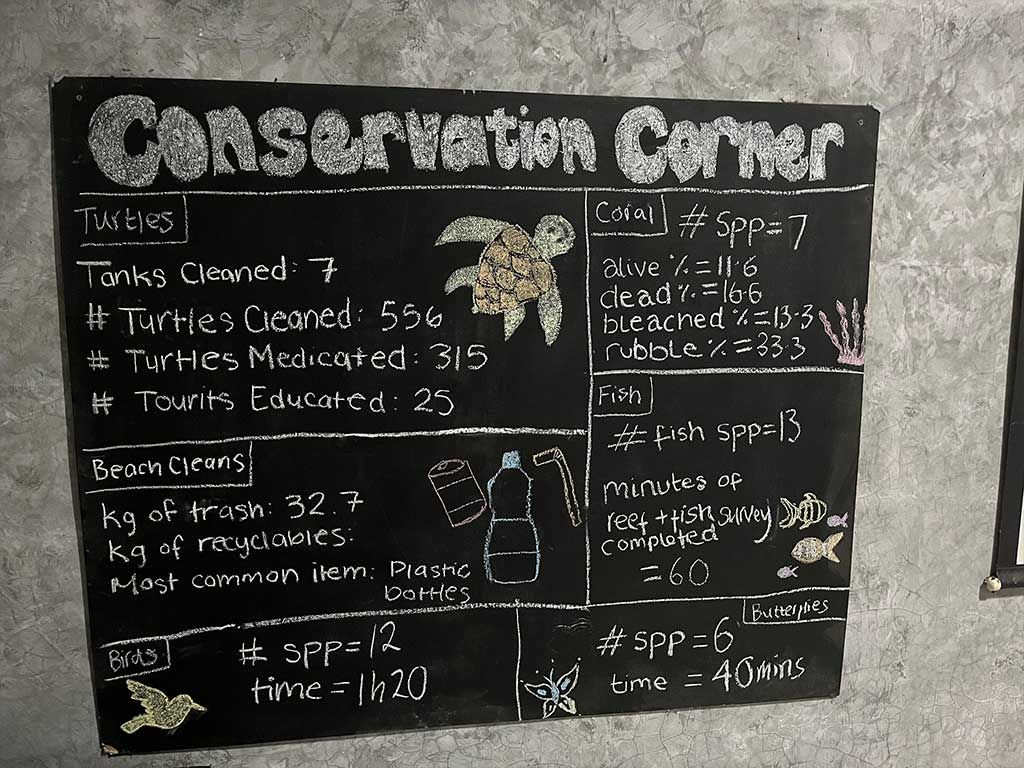 Conservation Corner
Turtles
Tanks Cleaned: 7
# Turtles Cleaned: 556
# Turtles Medicated: 315
# Tourits Educated: 25
Coral
# Spp=7
alive %=11.6
dead %=16.6
bleached %=13.3
rubble %=33.3
Beach Cleans
kg of trash: 32.7
kg of recyclables:
Most common item: Plastic
bottles
Fish
# fish spp=13
minutes of
reef + fish survey
completed
=60
Birds
# spp=12
time=1h20
Butterflies
# spp=6
time = 40mins